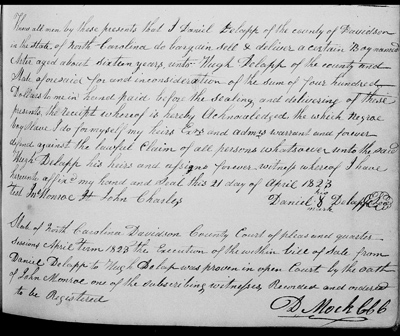 Know all men by these presents that I Daniel Delapp of the county of Davidson
in the state of North Carolina do bargain sell & deliver a certain Boy named
aged about sixteen years, unto Hugh Delapp of the county and
State aforesaid for and in consideration of the sum of four hundred
Dollars to me in hand paid before the sealing and delivering of these
presents, the receipt whereof is hereby Acknowledged the which Negroe
Boy slave I do for myself my heirs Exrs and admrs warrant and forever
defend against the lawful Claim of all persons whatsoever unto the said
Hugh Delapp his heirs and assigns forever witness whereof I have
hereunto affixd my hand and seal this 21 day of April 1823
test Jno Monroe John Charles Daniel his mark Delapp
State of North Carolina Davidson County Court of pleas and quarter
Sessions April term 1823 the Execution of the within bill of Sale from
Daniel Delapp to Hugh Delap was proven in open Court by the oath
of John Monroe one of the subscribing witnesses Recorded and ordered
to be Registered
D Mock CCC